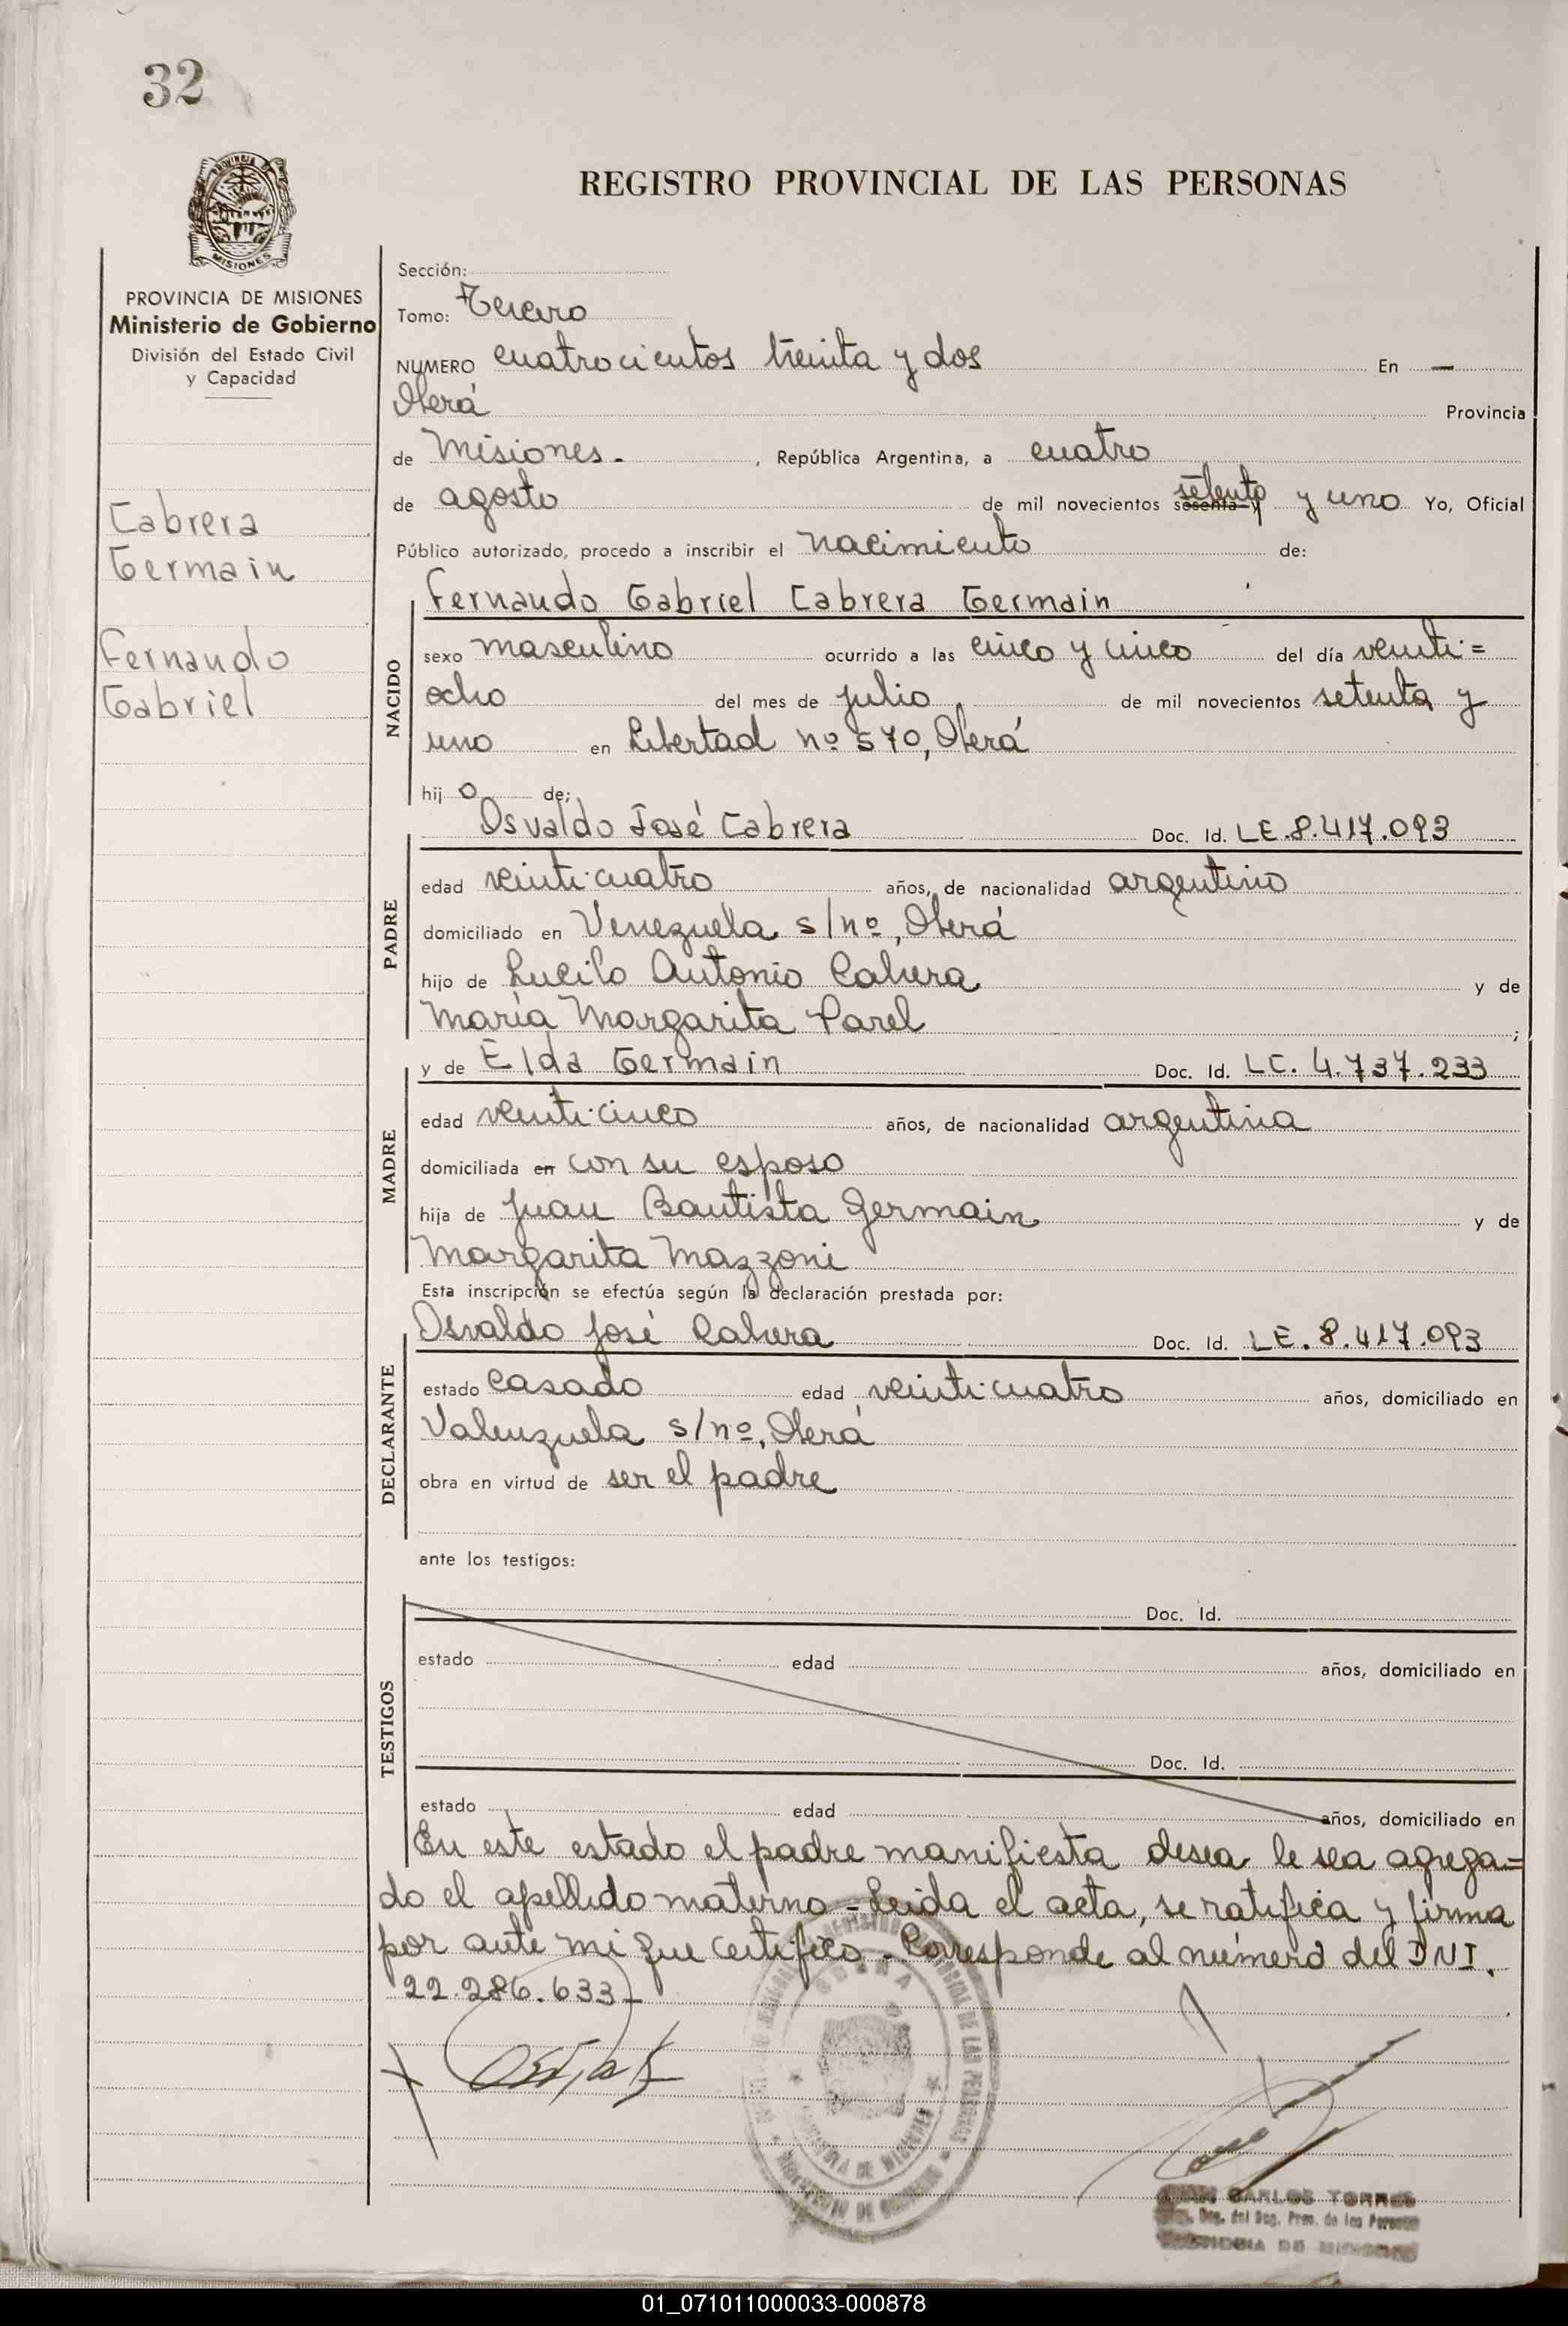 32
PROVINCIA DE
MISIONES
REGISTRO PROVINCIAL DE LAS PERSONAS
PROVINCIA DE MISIONES
Ministerio de Gobierno
División del Estado Civil
y Capacidad
Cabrera
Germain
Fernando
Gabriel
Sección:
Tomo: Tercero
NUMERO cuatrocientos treinta y dos En —
Oberá Provincia
de Misiones.- , República Argentina, a cuatro
de agosto de mil novecientos sesenta y setenta y uno Yo, Oficial
Público autorizado, procedo a inscribir el nacimiento de:
NACIDO
Fernando Gabriel Cabrera Germain
sexo masculino ocurrido a las cinco y cinco del día veinti=
ocho del mes de julio de mil novecientos setenta y
uno en Libertad nº 570, Oberá
hij o de;
PADRE
Osvaldo José Cabrera Doc. Id. LE.8.417.093
edad veinticuatro años, de nacionalidad argentino
domiciliado en Venezuela s/nº, Oberá
hijo de Lucilo Antonio Cabrera y de
María Margarita Parel ;
MADRE
y de Elda Germain Doc. Id. LC. 4.737.233
edad veinticinco años, de nacionalidad argentina
domiciliada en con su esposo
hija de Juan Bautista Germain y de
Margarita Mazzoni
Esta inscripción se efectúa según la declaración prestada por:
DECLARANTE
Osvaldo José Cabrera Doc. Id. LE. 8.417.093
estado casado edad veinticuatro años, domiciliado en
Valenzuela s/nº, Oberá
obra en virtud de ser el padre
ante los testigos:
TESTIGOS
Doc. Id.
estado edad años, domiciliado en
Doc. Id.
estado edad años, domiciliado en
En este estado el padre manifiesta desea le sea agrega=
do el apellido materno - Leida el acta, se ratifica y firma
por ante mi que certifico - Corresponde al número del DNI.
22.286.633-
OBERA
CARLOS TORRES
del Reg. Prov. de las Personas
01_071011000033-000878